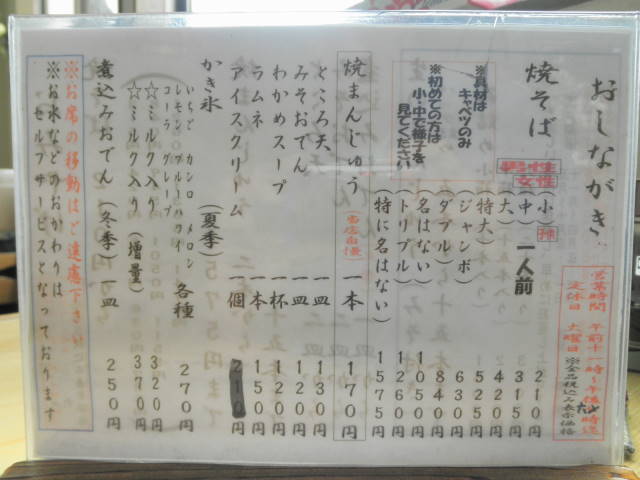 おしながき
営業時間 午前十一時〜午後
定休日 火曜日 ※全品税込み表示価格
焼そば
男性
女性
(小) 一人前 210円
(中) 315円
(大) 420円
(特大) 525円
(ジャンボ) 630円
(ダブル) 840円
(名はない) 1050円
(トリプル) 1260円
(特に名はない) 1575円
※具材は
キャベツのみ
※初めての方は
小・中で様子を
見てください
焼まんじゅう 一本 170円
ところ天 一皿 130円
みそおでん 一皿 120円
わかめスープ 一杯 120円
ラムネ 一本 150円
アイスクリーム 一個
かき氷 (夏季)
いちご カンロ メロン
レモン ブルーハワイ 各種 270円
コーラ グレープ
☆ミルク入り 320円
☆ミルク入り (増量) 370円
煮込みおでん (冬季) 一皿 250円
※お席の移動はご遠慮下さい
※お水などのおかわりは
セルフサービスとなっております